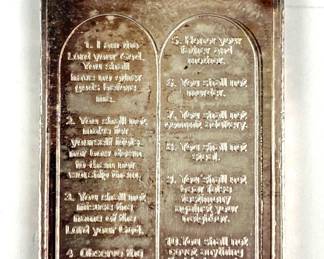 1. I am the
Lord your God.
You shall
have no other
gods before
me.
2. You shall not
make for
yourself idols
nor bow down
to them nor
worship them.
3. You shall not
misuse the
name of the
Lord your God.
4 Observe the
5. Honor your
father and
mother.
6. You shall not
murder.
7. You shall not
commit adultery.
8. You shall not
steal.
9. You shall not
bear false
testimony
against your
neighbor.
10. You shall not
covet anything